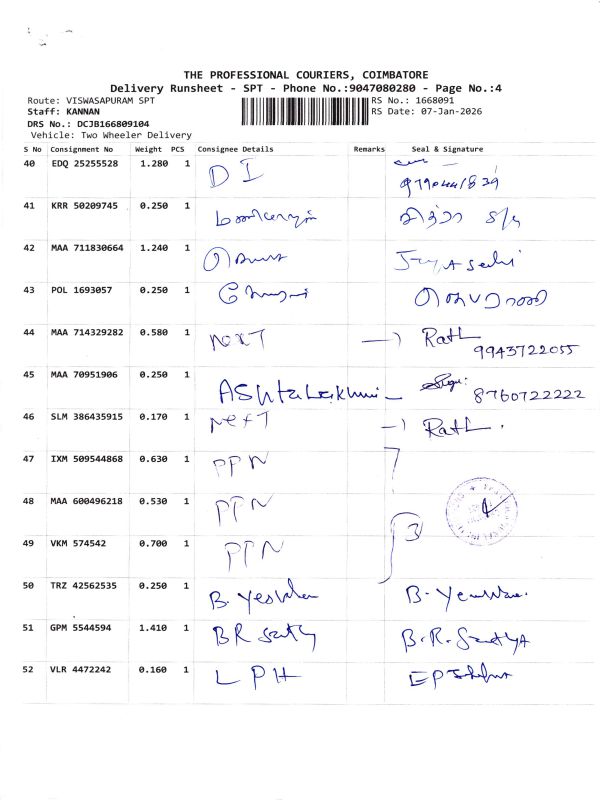 THE PROFESSIONAL COURIERS, COIMBATORE
Delivery Runsheet - SPT - Phone No.:9047080280 - Page No.:4
Route: VISWASAPURAM SPT
RS No.: 1668091
Staff: KANNAN
RS Date: 07-Jan-2026
DRS No.: DCJB166809104
Vehicle: Two Wheeler Delivery
S No Consignment No Weight PCS Consignee Details Remarks Seal & Signature
40 EDQ 25255528 1.280 1 D I
41 KRR 50209745 0.250 1
42 MAA 711830664 1.240 1
43 POL 1693057 0.250 1
44 MAA 714329282 0.580 1 NexT Rath
9943722055
45 MAA 70951906 0.250 1 AShtaLakhmi
8760722222
46 SLM 386435915 0.170 1 NexT Rath.
47 IXM 509544868 0.630 1 PPN
48 MAA 600496218 0.530 1 PPN
3
49 VKM 574542 0.700 1 PPN
50 TRZ 42562535 0.250 1 B. B.
51 GPM 5544594 1.410 1 BR B.R.
52 VLR 4472242 0.160 1 LPH